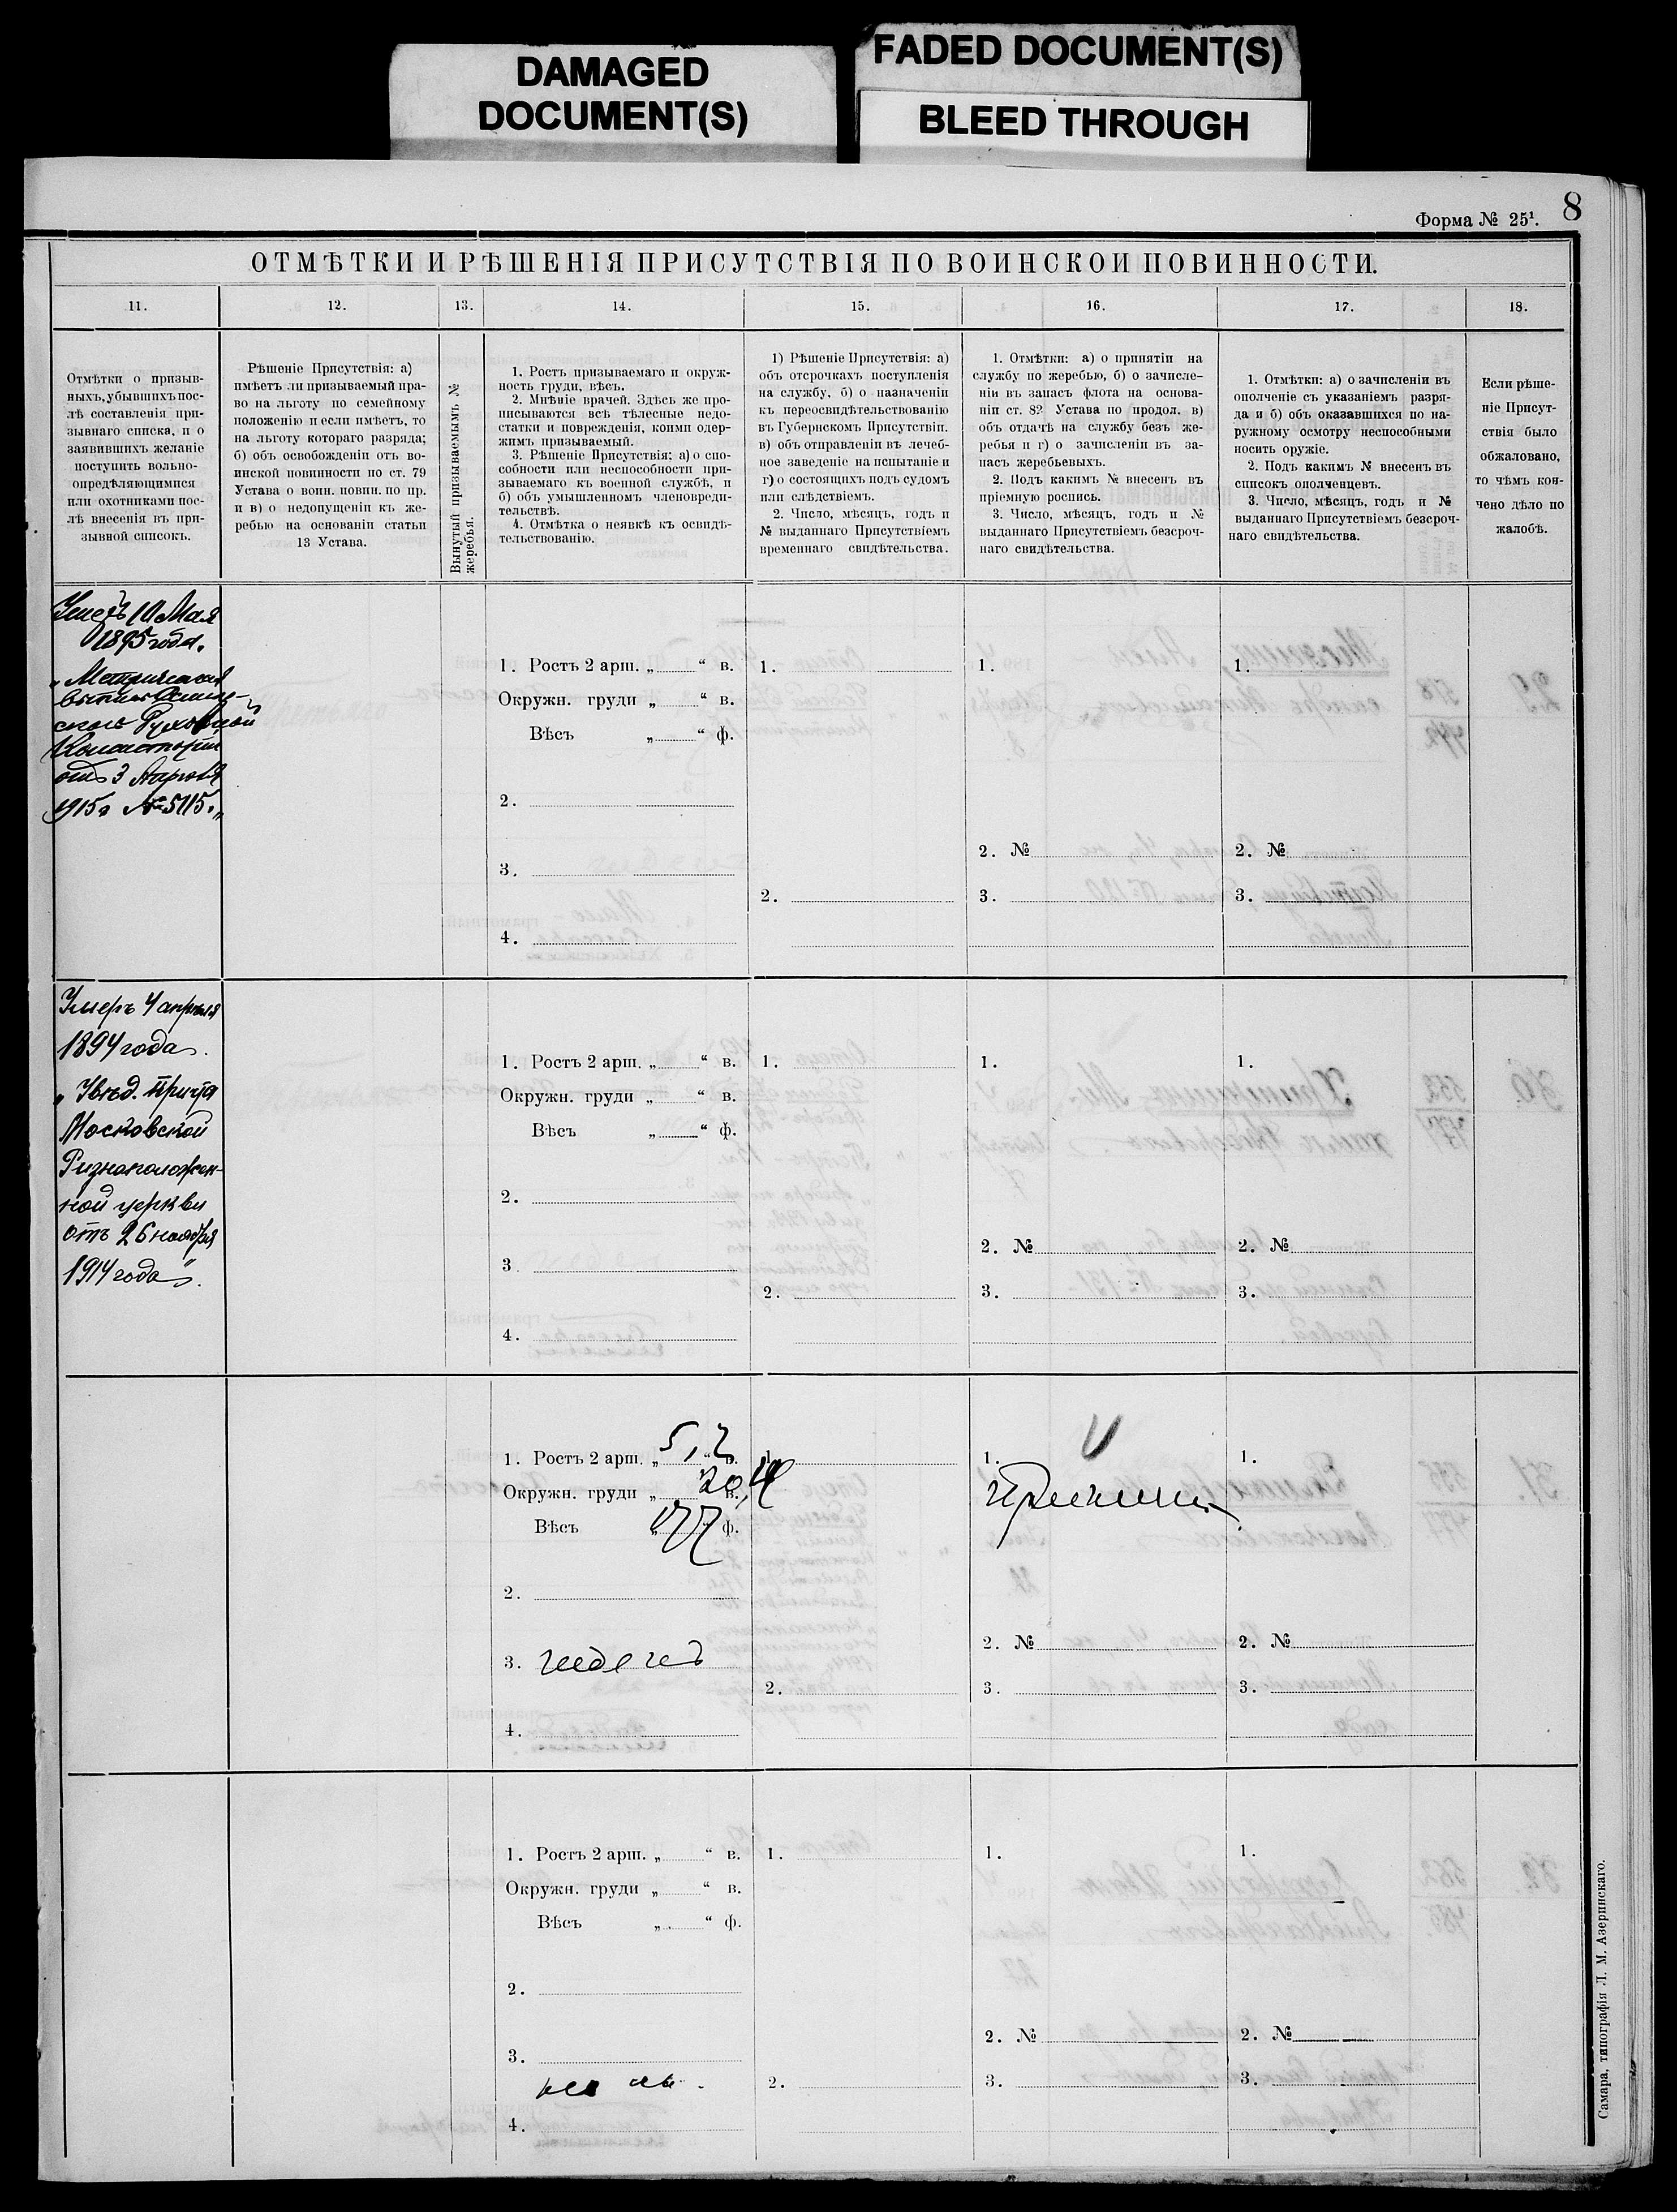 DAMAGED
DOCUMENT(S)
FADED DOCUMENT(S)
BLEED THROUGH
8
Форма № 25¹.
ОТМѢТКИ И РѢШЕНІЯ ПРИСУТСТВІЯ ПО ВОИНСКОИ ПОВИННОСТИ.
11.
12.
13.
14.
15.
16.
17.
18.
Отмѣтки о призыв-
ныхъ, убывшихъ пос-
лѣ составленія при-
зывнаго списка, и о
заявившихъ желаніе
поступить вольно-
опредѣляющимися
или охотниками пос-
лѣ внесенія въ при-
зывной списокъ.
Рѣшеніе Присутствія: а)
имѣетъ ли призываемый пра-
во на льготу по семейному
положенію и если имѣетъ, то
на льготу котораго разряда;
б) объ освобожденіи отъ во-
инской повинности по ст. 79
Устава о воин. повин. по пр.
и в) о недопущеніи къ же-
ребью на основаніи статьи
13 Устава.
Вынутый призываемымъ №
жеребья.
1. Ростъ призываемаго и окруж-
ность груди, вѣсъ.
2. Мнѣніе врачей. Здѣсь же про-
писываются всѣ тѣлесные недо-
статки и поврежденія, коими одер-
жимъ призываемый.
3. Рѣшеніе Присутствія: а) о спо-
собности или неспособности при-
зываемаго къ военной службѣ, и
б) объ умышленномъ членовреди-
тельствѣ.
4. Отмѣтка о неявкѣ къ освидѣ-
тельствованію.
1) Рѣшеніе Присутствія: а)
объ отсрочкахъ поступленія
на службу, б) о назначеніи
къ переосвидѣтельствованію
въ Губернскомъ Присутствіи.
в) объ отправленіи въ лечеб-
ное заведеніе на испытаніе и
г) о состоящихъ подъ судомъ
или слѣдствіемъ.
2. Число, мѣсяцъ, годъ и
№ выданнаго Присутствіемъ
временнаго свидѣтельства.
1. Отмѣтки: а) о принятіи на
службу по жеребью, б) о зачисле-
ніи въ запасъ флота на основа-
ніи ст. 82 Устава по продол. в)
объ отдачѣ на службу безъ же-
ребья и г) о зачисленіи въ за-
пасъ жеребьевыхъ.
2. Подъ какимъ № внесенъ въ
пріемную роспись.
3. Число, мѣсяцъ, годъ и №
выданнаго Присутствіемъ безсроч-
наго свидѣтельства.
1. Отмѣтки: а) о зачисленіи въ
ополченіе съ указаніемъ разря-
да и б) объ оказавшихся по на-
ружному осмотру неспособными
носить оружіе.
2. Подъ какимъ № внесенъ въ
списокъ ополченцевъ.
3. Число, мѣсяцъ, годъ и №
выданнаго Присутствіемъ безсроч-
наго свидѣтельства.
Если рѣше-
ніе Присут-
ствія было
обжаловано,
то чѣмъ кон-
чено дѣло по
жалобѣ.
Умеръ 10 Мая
1895 года.
„Метрическая
Духовной
Консисторіи
отъ 3 Апрѣля
1915 г № 5115.„
1. Ростъ 2 арш. „ “ в.
Окружн. груди „ “ в.
Вѣсъ „ “ ф.
2.
3.
4.
1.
2.
1.
2. №
3.
1.
2. №
3.
Умеръ 4 апрѣля
1894 года.
„Увѣд. Причта
Московской
Ризположен-
ной церкви
отъ 26 ноября
1914 года“.
1. Ростъ 2 арш. „ “ в.
Окружн. груди „ “ в.
Вѣсъ „ “ ф.
2.
3
4.
1.
2.
1.
2. №
3.
1.
2. №
3.
1. Ростъ 2 арш. „ 5,2 в.
Окружн. груди „ 20,4 в.
Вѣсъ „ 177 ф.
2.
3. годенъ
4.
1.
2.
1.
принятъ
2. №
3.
1.
2. №
3.
1. Ростъ 2 арш. „ “ в.
Окружн. груди „ “ в.
Вѣсъ „ “ ф.
2.
3.
4.
1.
2.
1.
2. №
3.
1.
2. №
3.
Самара, типографія Л. М. Азеринскаго.